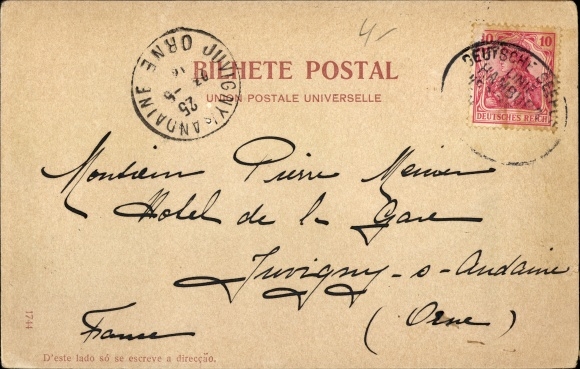 4-
10
DEUTSCHE SEEPOST
LINIE
HAMBURG
DEUTSCHES REICH
JUVIGNY S ANDAINE ORNE
25 -6
07
BILHETE POSTAL
UNION POSTALE UNIVERSELLE
Monsieur Pierre
Hotel de la Gare
Juvigny-s-Andaine
France (Orne)
1744
D'este lado só se escreve a direcção.